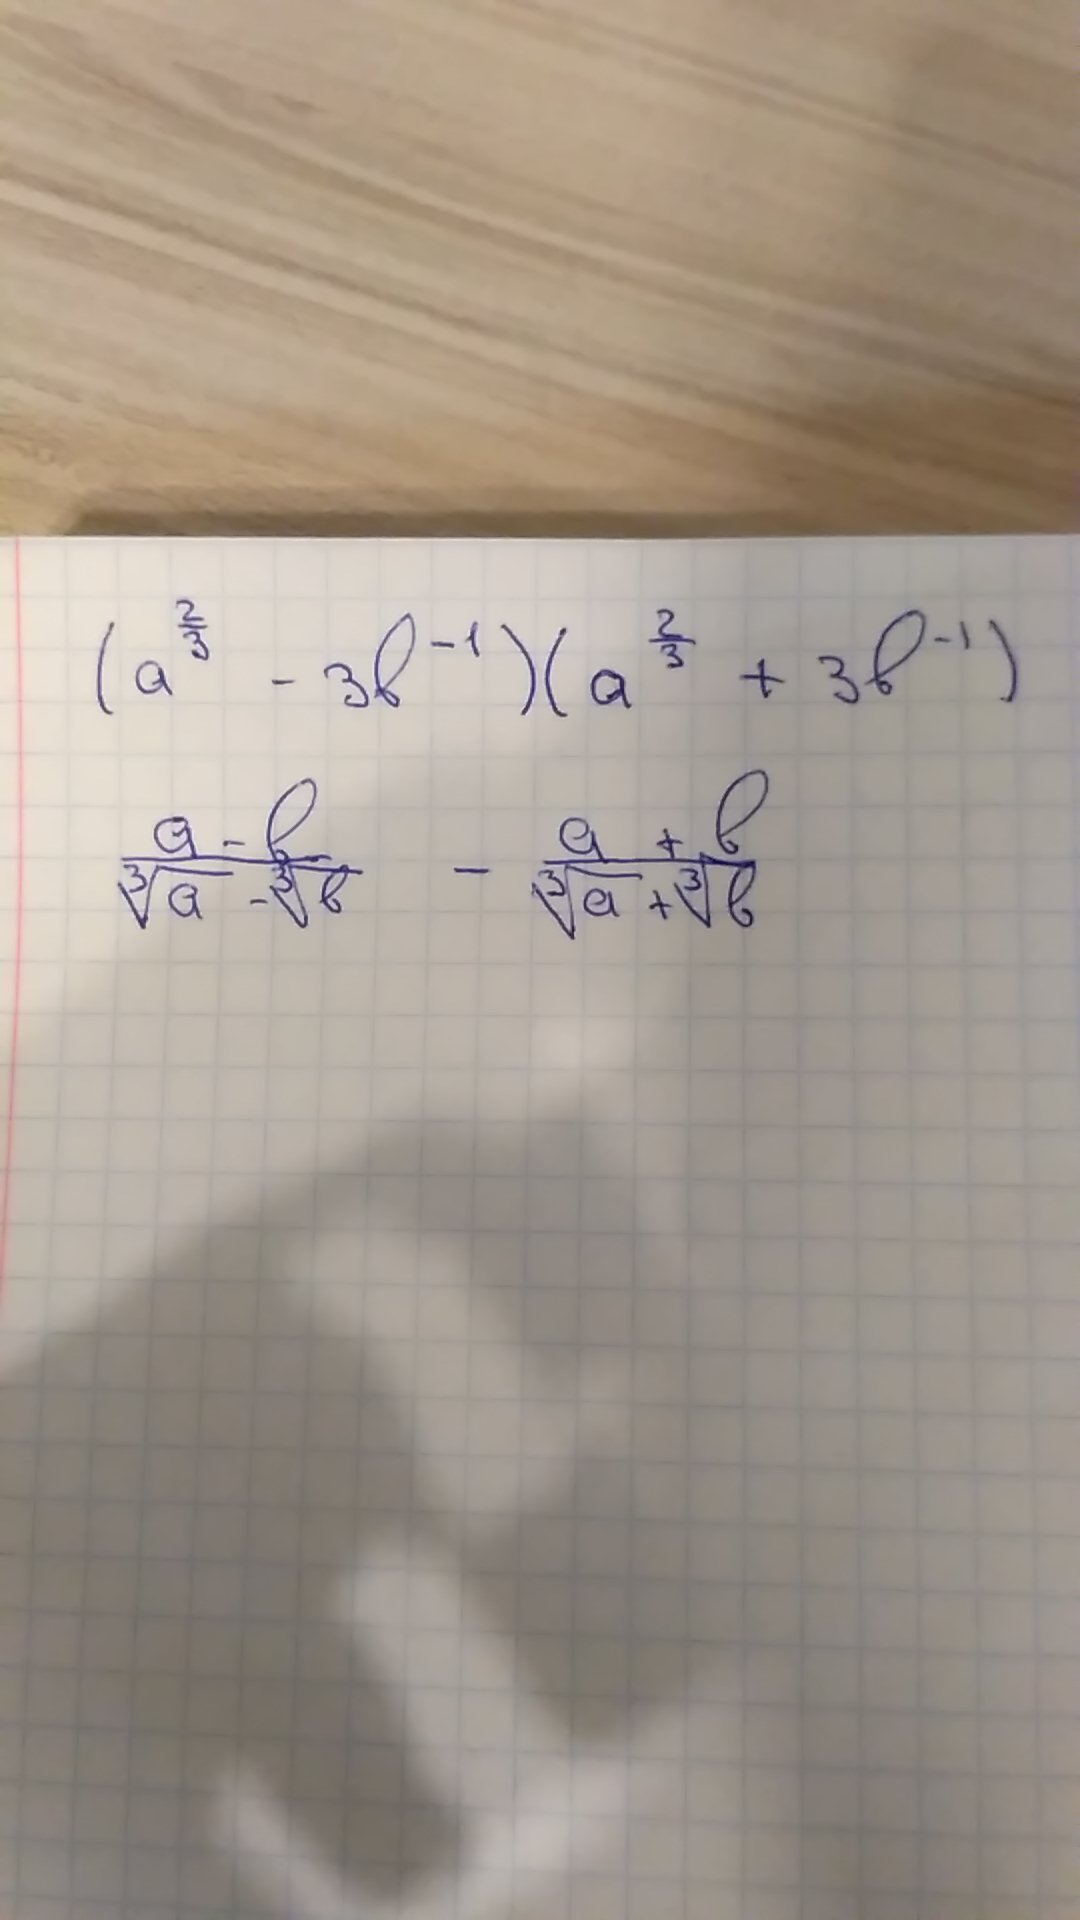 (a^{\frac{2}{3}} - 3b^{-1})(a^{\frac{2}{3}} + 3b^{-1})
\frac{a - b}{\sqrt[3]{a} - \sqrt[3]{b}} - \frac{a + b}{\sqrt[3]{a} + \sqrt[3]{b}}